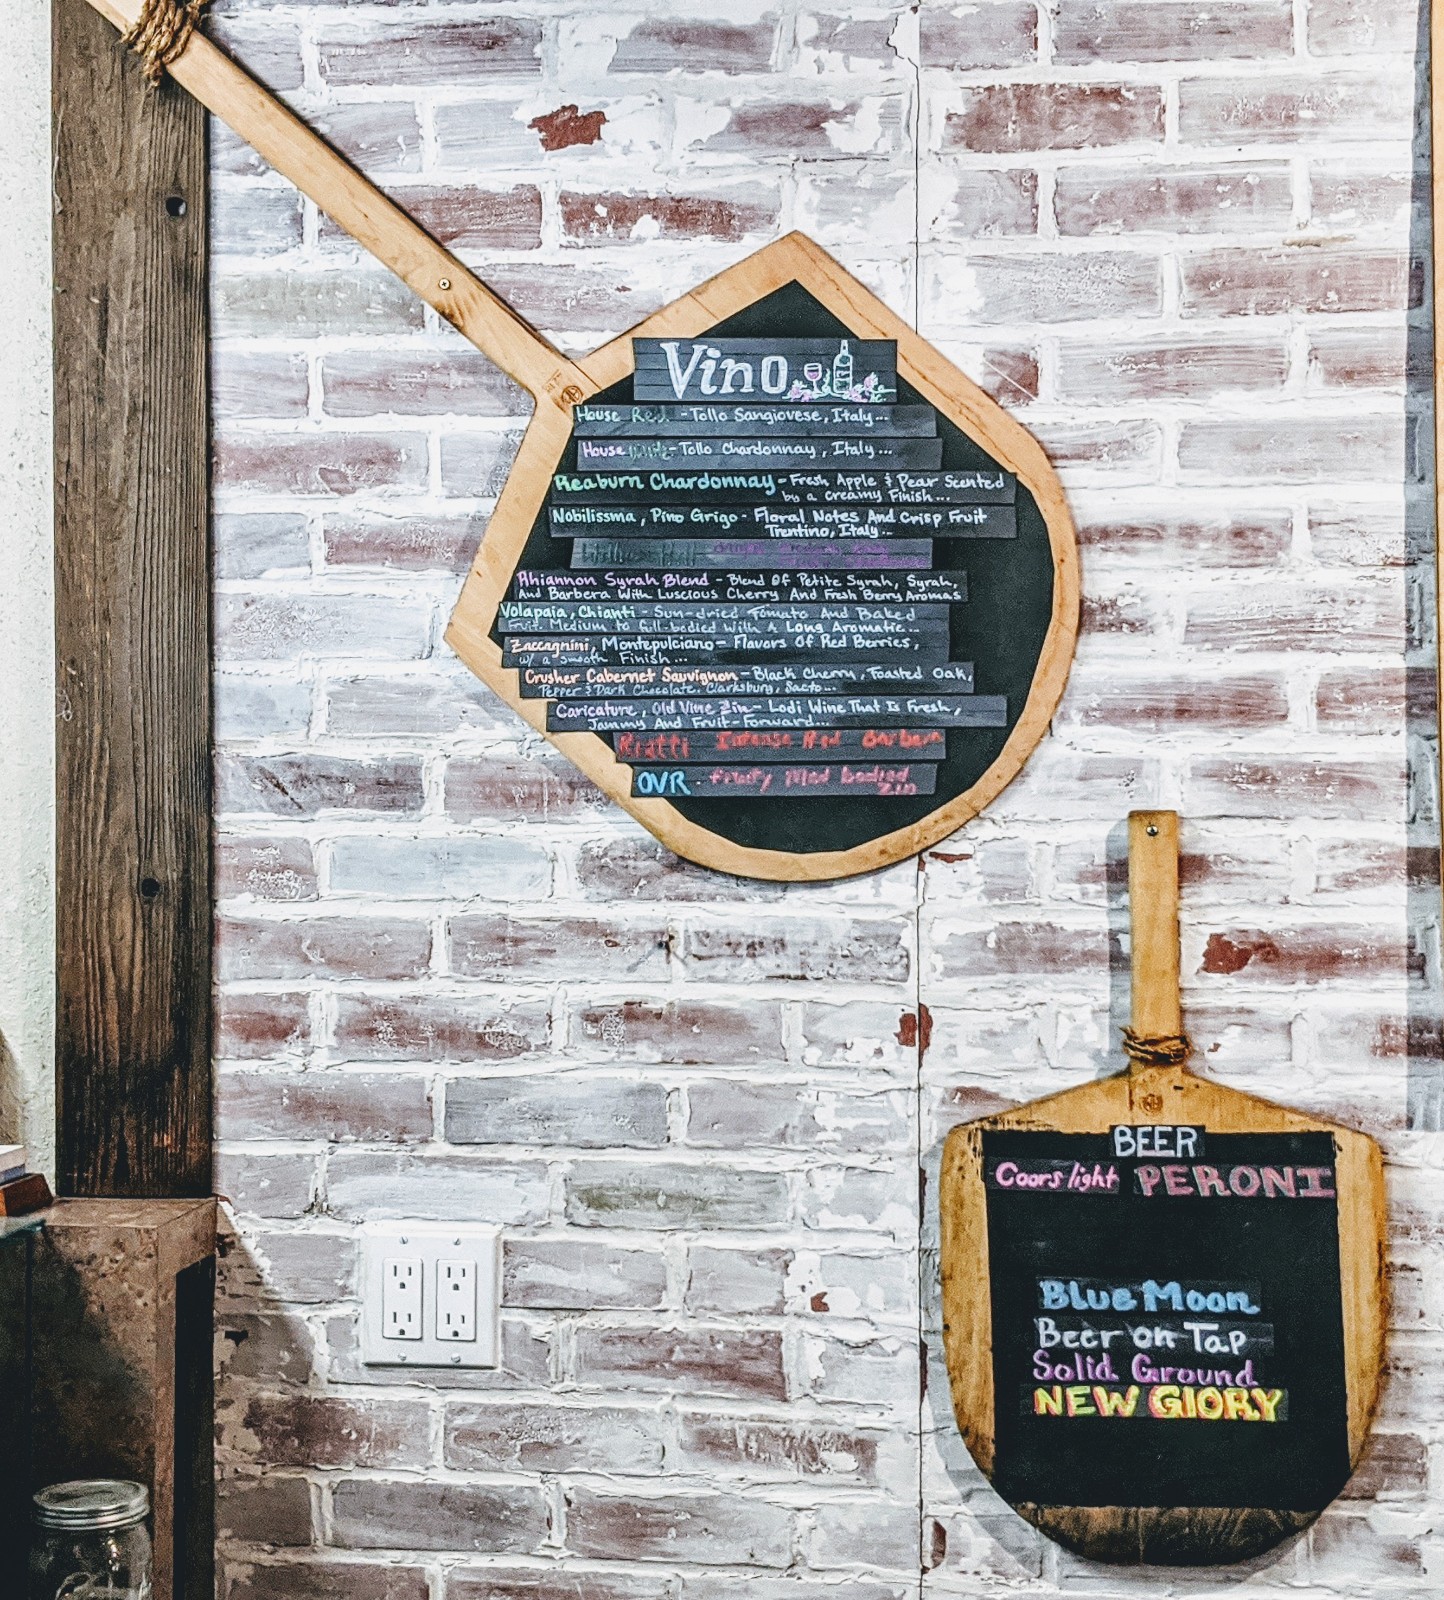 Vino
House Red - Tollo Sangiovese, Italy...
House - Tollo Chardonnay, Italy...
Reaburn Chardonnay - Fresh Apple & Pear Scented
by a creamy Finish...
Nobilissma, Pino Grigo - Floral Notes And Crisp Fruit
Trentino, Italy...
Rhiannon Syrah Blend - Blend Of Petite Syrah, Syrah,
And Barbera With Luscious Cherry And Fresh Berry Aromas
Volapaia, Chianti - Sun-dried Tomato And Baked
Fruit. Medium to full-bodied With A Long Aromatic...
Zaccagnini, Montepulciano - Flavors Of Red Berries,
w/ a smooth Finish...
Crusher Cabernet Sauvignon - Black Cherry, Toasted Oak,
Pepper & Dark Chocolate. Clarksburg, Sacto...
Caricature, Old Vine Zin - Lodi Wine That Is Fresh,
Jammy And Fruit-Forward...
Riatti Intense Red Barbera
OVR - Fruity Med bodied
Zin
BEER
Coors light PERONI
Blue Moon
Beer on Tap
Solid Ground
NEW GlORY